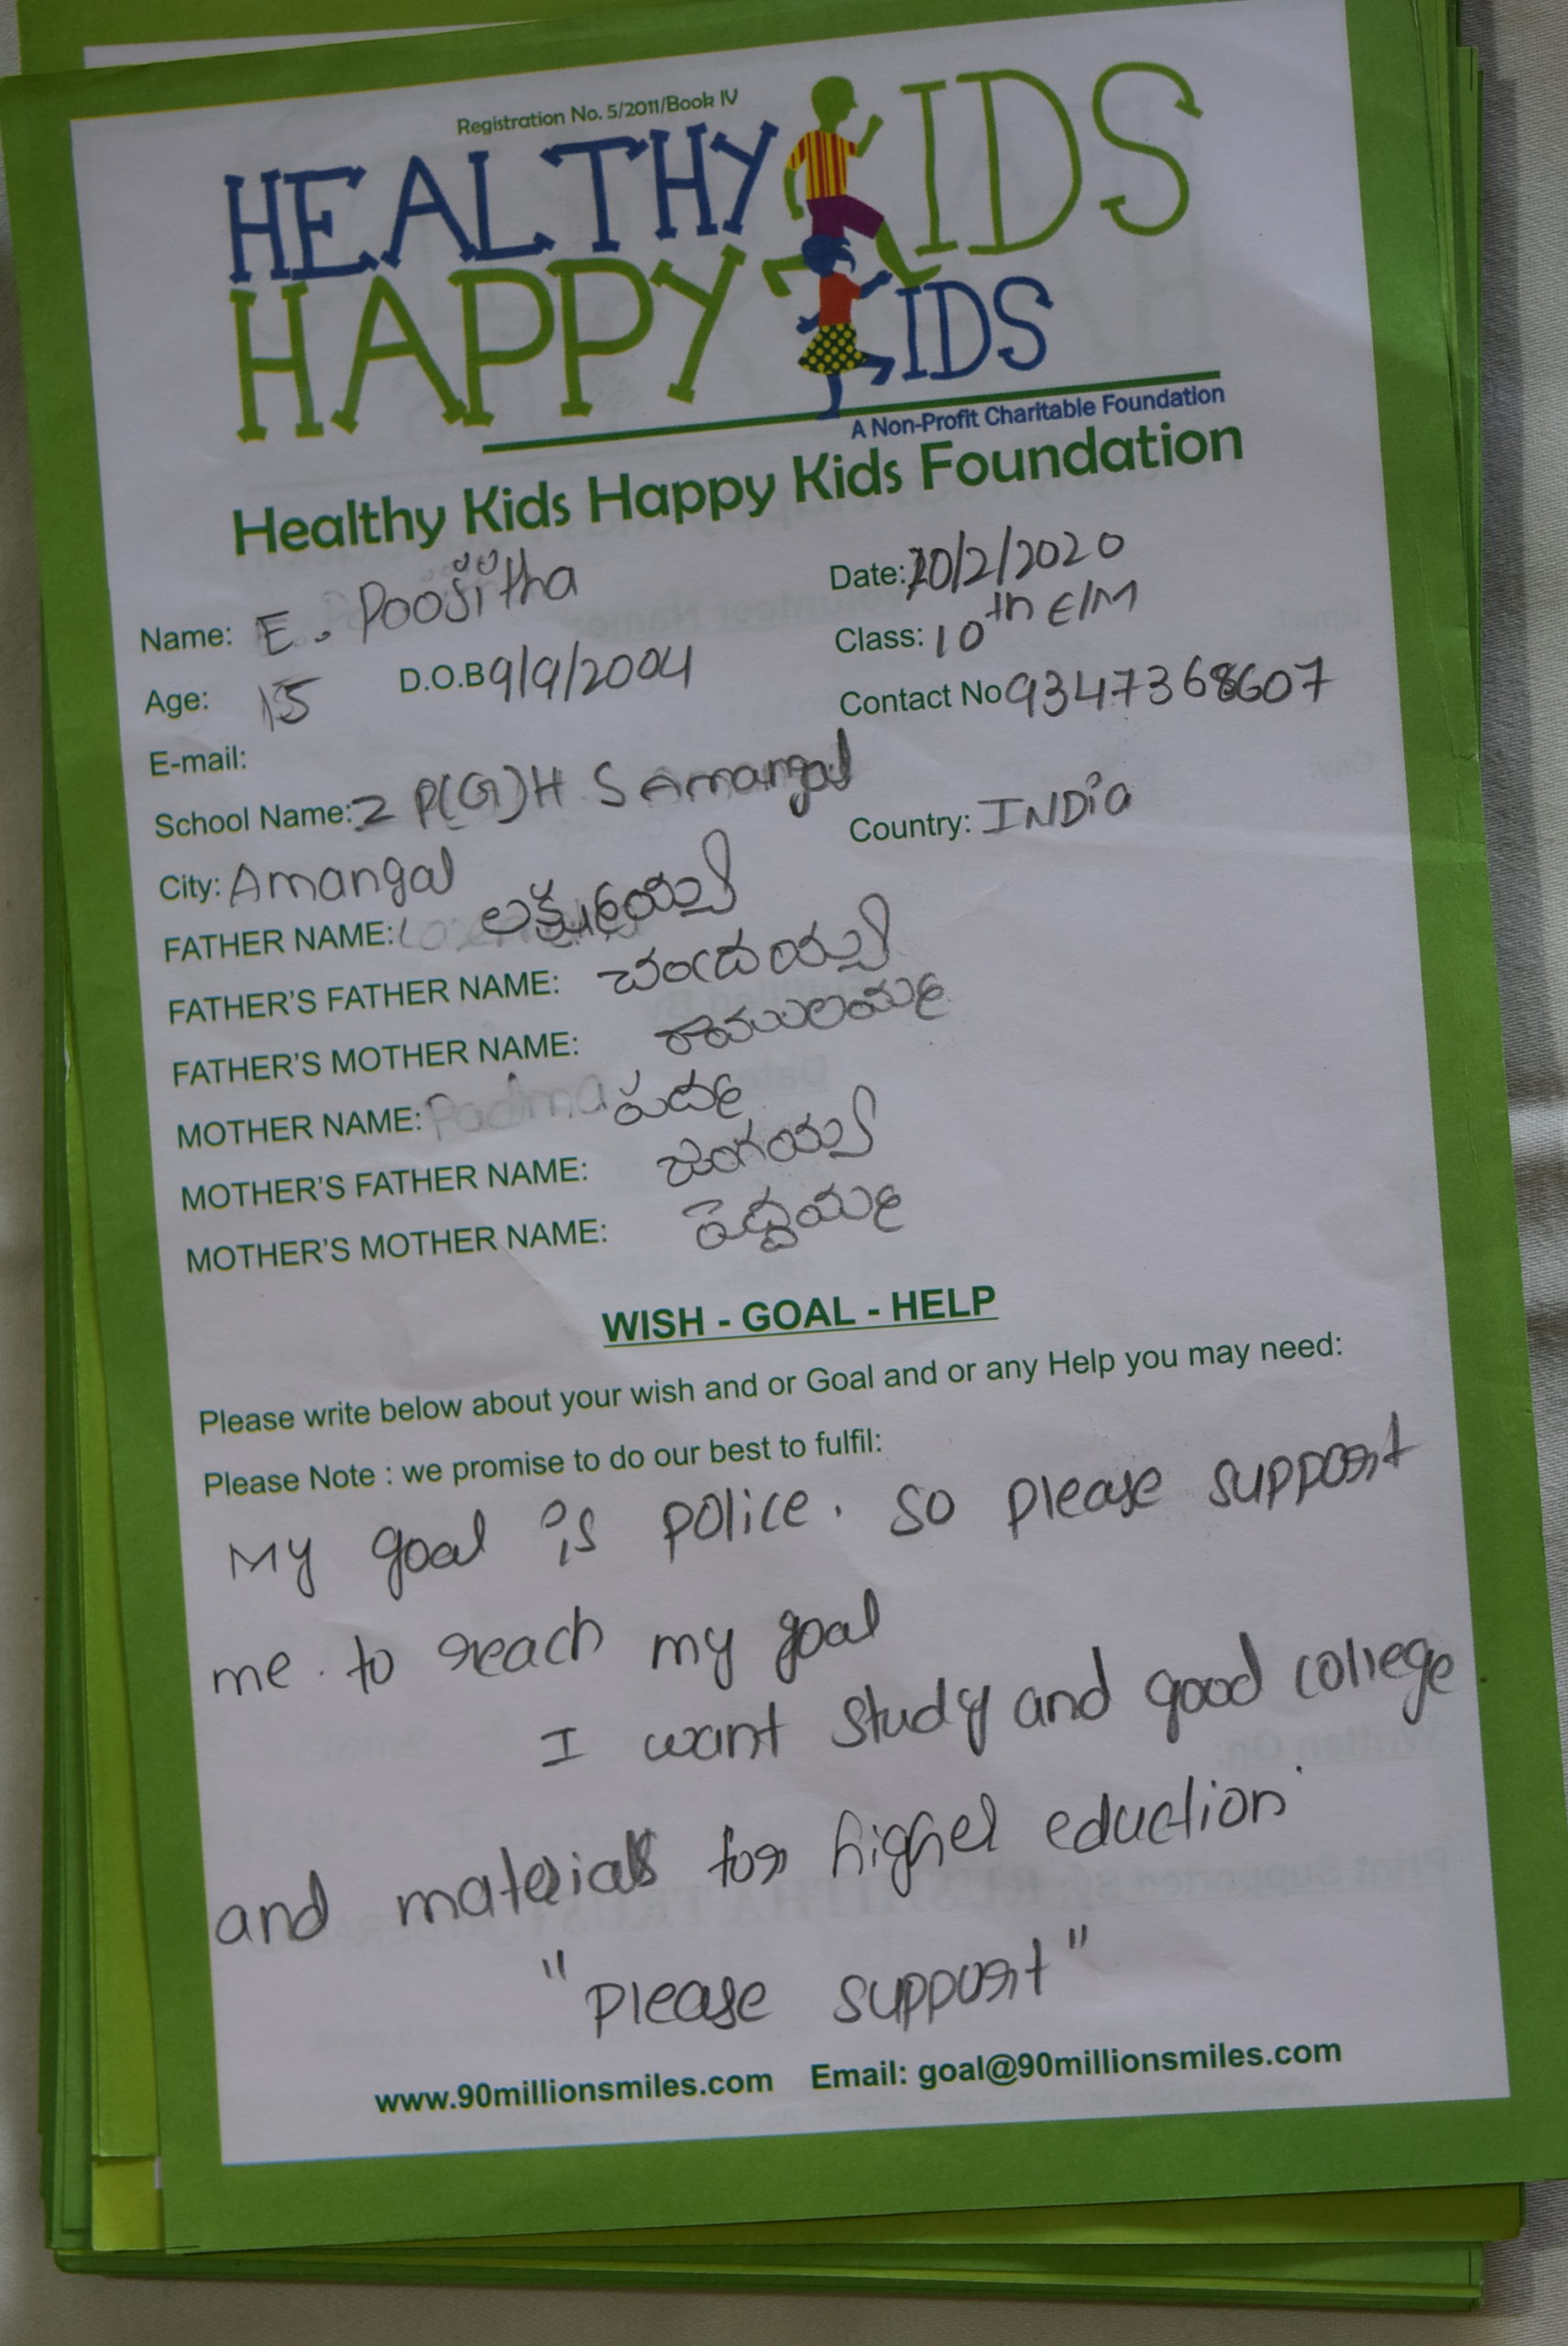 Registration No. 5/2011/Book IV
HEALTHY KIDS
HAPPY KIDS
A Non-Profit Charitable Foundation
Healthy Kids Happy Kids Foundation
Name: E. Poojitha Date: 20/2/2020
Age: 15 D.O.B 9/9/2004 Class: 10th E/M
E-mail: Contact No 9347368607
School Name: Z P(G)H S Amangal
City: Amangal Country: INDia
FATHER NAME: లక్ష్మయ్య
FATHER'S FATHER NAME: చంద్రయ్య
FATHER'S MOTHER NAME: రాములమ్మ
MOTHER NAME: Padma పద్మ
MOTHER'S FATHER NAME: జంగయ్య
MOTHER'S MOTHER NAME: పెద్దమ్మ
WISH - GOAL - HELP
Please write below about your wish and or Goal and or any Help you may need:
Please Note : we promise to do our best to fulfil:
My goal is police. so please support
me. to reach my goal
I want study and good college
and materials for higher eduction.
"please support"
www.90millionsmiles.com Email: goal@90millionsmiles.com